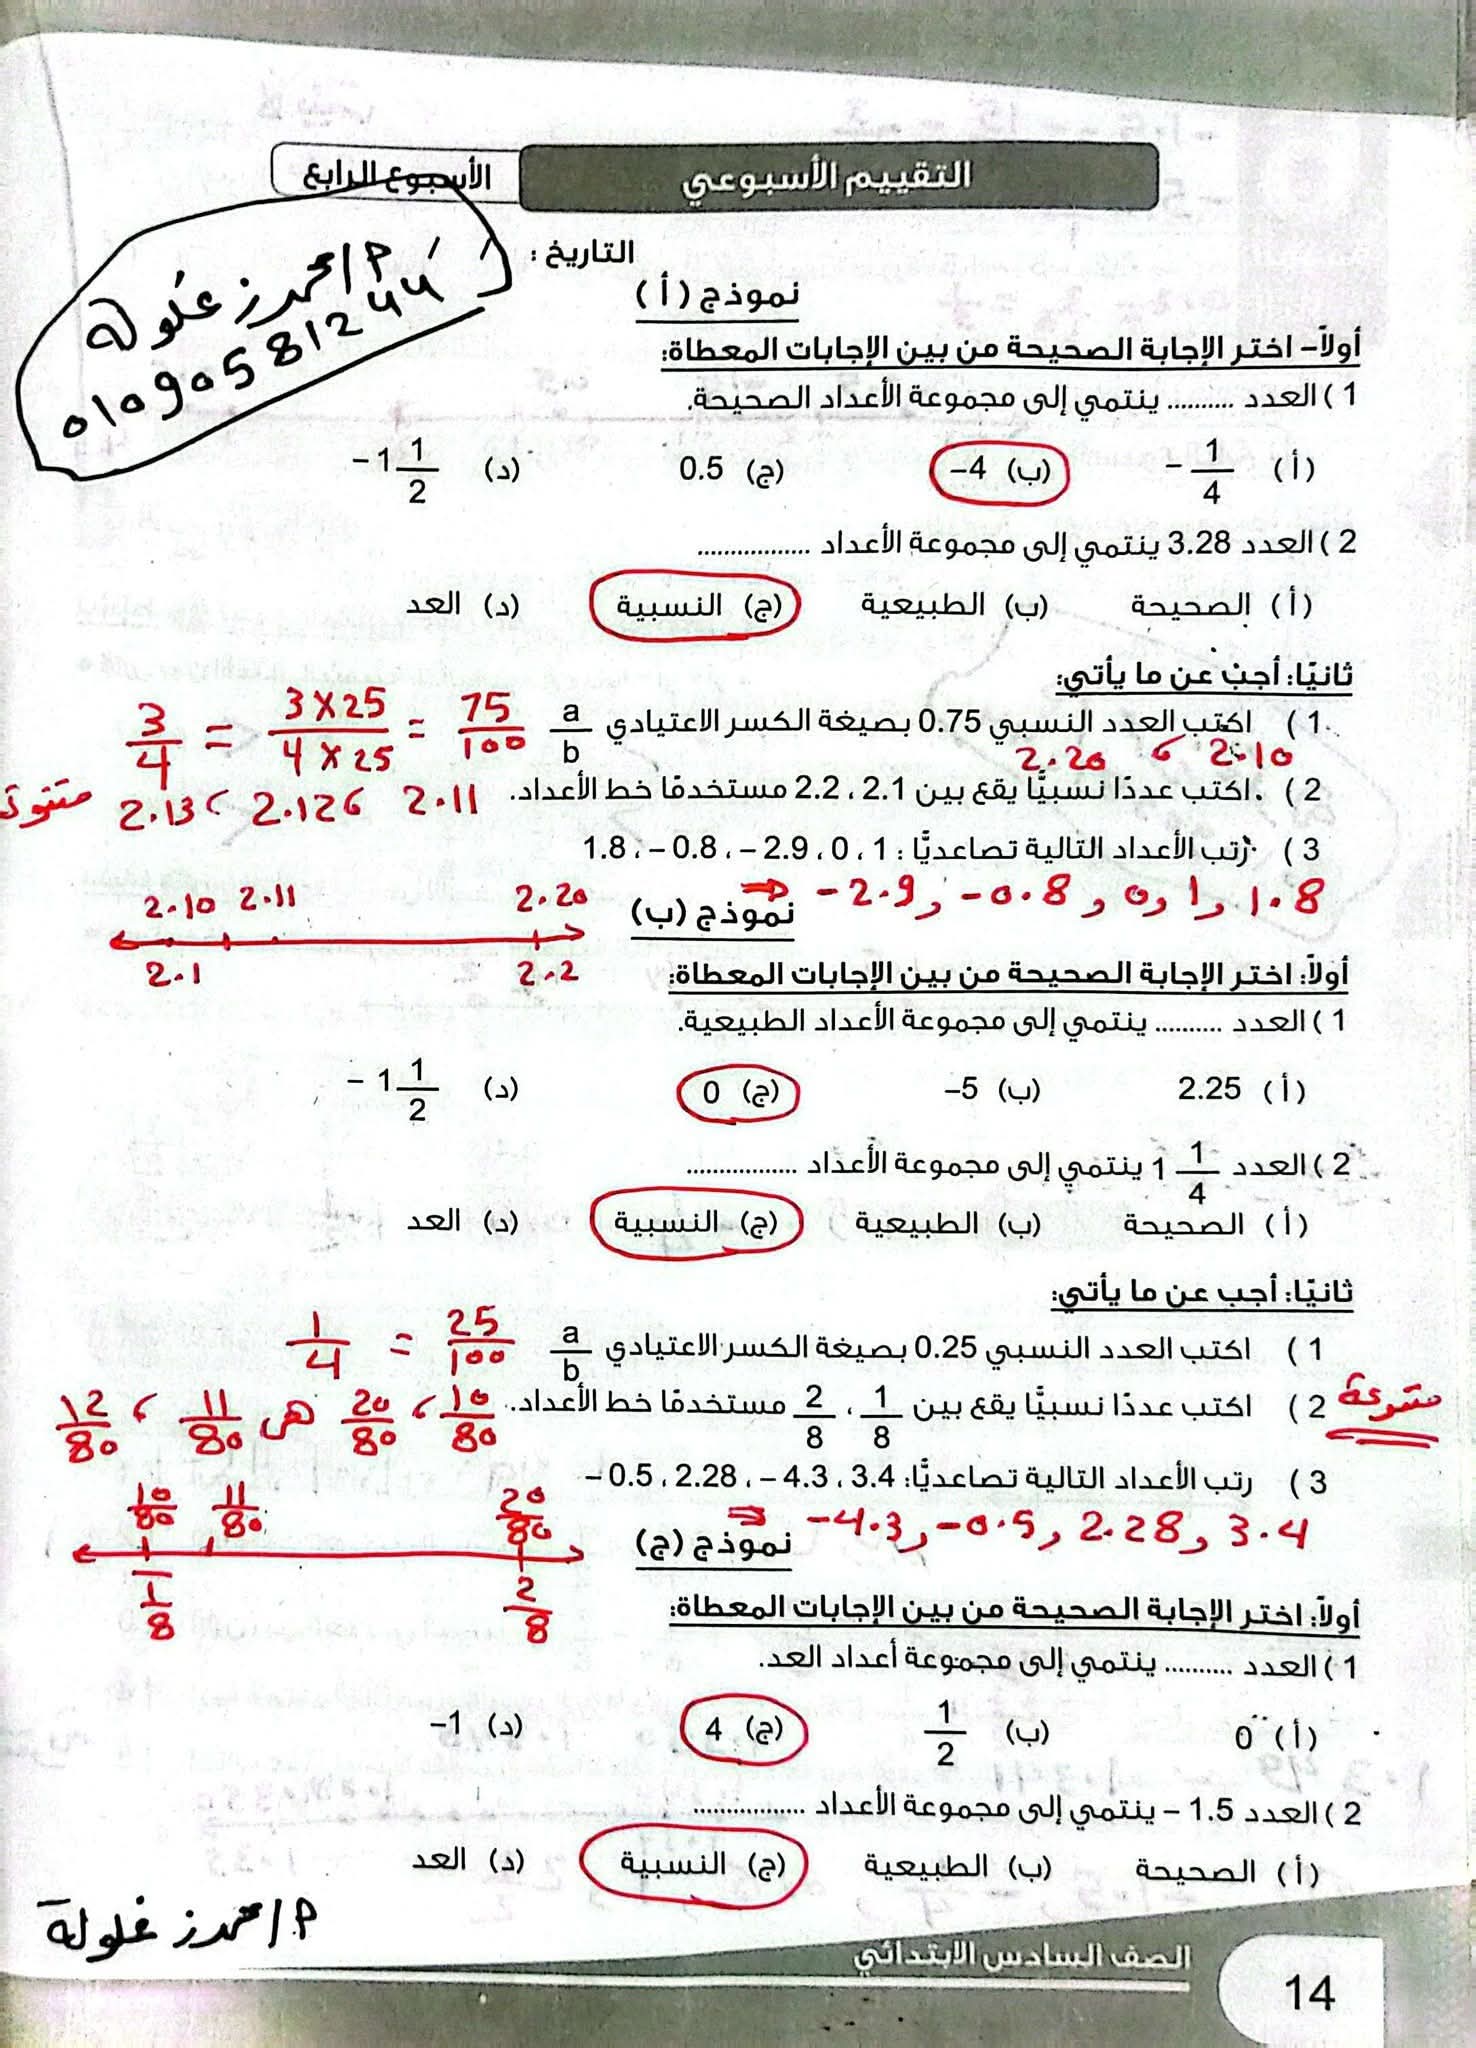 التقييم الأسبوعي
الأسبوع الرابع
التاريخ : / /
01090581244
نموذج (أ)
أولاً- اختر الإجابة الصحيحة من بين الإجابات المعطاة:
1 ) العدد .......... ينتمي إلى مجموعة الأعداد الصحيحة.
(أ) - 1/4 (ب) -4 (ج) 0.5 (د) - 1 1/2
2 ) العدد 3.28 ينتمي إلى مجموعة الأعداد .................
(أ) الصحيحة (ب) الطبيعية (ج) النسبية (د) العد
ثانيًا: أجب عن ما يأتي:
1 ) اكتب العدد النسبي 0.75 بصيغة الكسر الاعتيادي a/b
75/100 = 3×25/4×25 = 3/4
2.10 ، 2.20
2 ) اكتب عددًا نسبيًّا يقع بين 2.1 ، 2.2 مستخدمًا خط الأعداد.
2.11 ، 2.12 ، 2.13
3 ) رتب الأعداد التالية تصاعديًّا : 1 ، 0 ، 2.9 - ، 0.8 - ، 1.8
⇒ -2.9, -0.8, 0, 1, 1.8
2.10 2.11 2.20
2.1 2.2
نموذج (ب)
أولاً: اختر الإجابة الصحيحة من بين الإجابات المعطاة:
1 ) العدد .......... ينتمي إلى مجموعة الأعداد الطبيعية.
(أ) 2.25 (ب) -5 (ج) 0 (د) - 1 1/2
2 ) العدد 1 1/4 ينتمي إلى مجموعة الأعداد .................
(أ) الصحيحة (ب) الطبيعية (ج) النسبية (د) العد
ثانيًا: أجب عن ما يأتي:
1 ) اكتب العدد النسبي 0.25 بصيغة الكسر الاعتيادي a/b
25/100 = 1/4
2 ) اكتب عددًا نسبيًّا يقع بين 1/8 ، 2/8 مستخدمًا خط الأعداد.
متنوعة
10/80 ، 20/80 هى 11/80 ، 12/80
3 ) رتب الأعداد التالية تصاعديًّا: 3.4 ، 4.3 - ، 2.28 ، 0.5 -
⇒ -4.3, -0.5, 2.28, 3.4
10/80 11/80 20/80
1/8 2/8
نموذج (ج)
أولاً: اختر الإجابة الصحيحة من بين الإجابات المعطاة:
1 ) العدد .......... ينتمي إلى مجموعة أعداد العد.
(أ) 0 (ب) 1/2 (ج) 4 (د) -1
2 ) العدد 1.5 - ينتمي إلى مجموعة الأعداد .................
(أ) الصحيحة (ب) الطبيعية (ج) النسبية (د) العد
الصف السادس الابتدائي
14